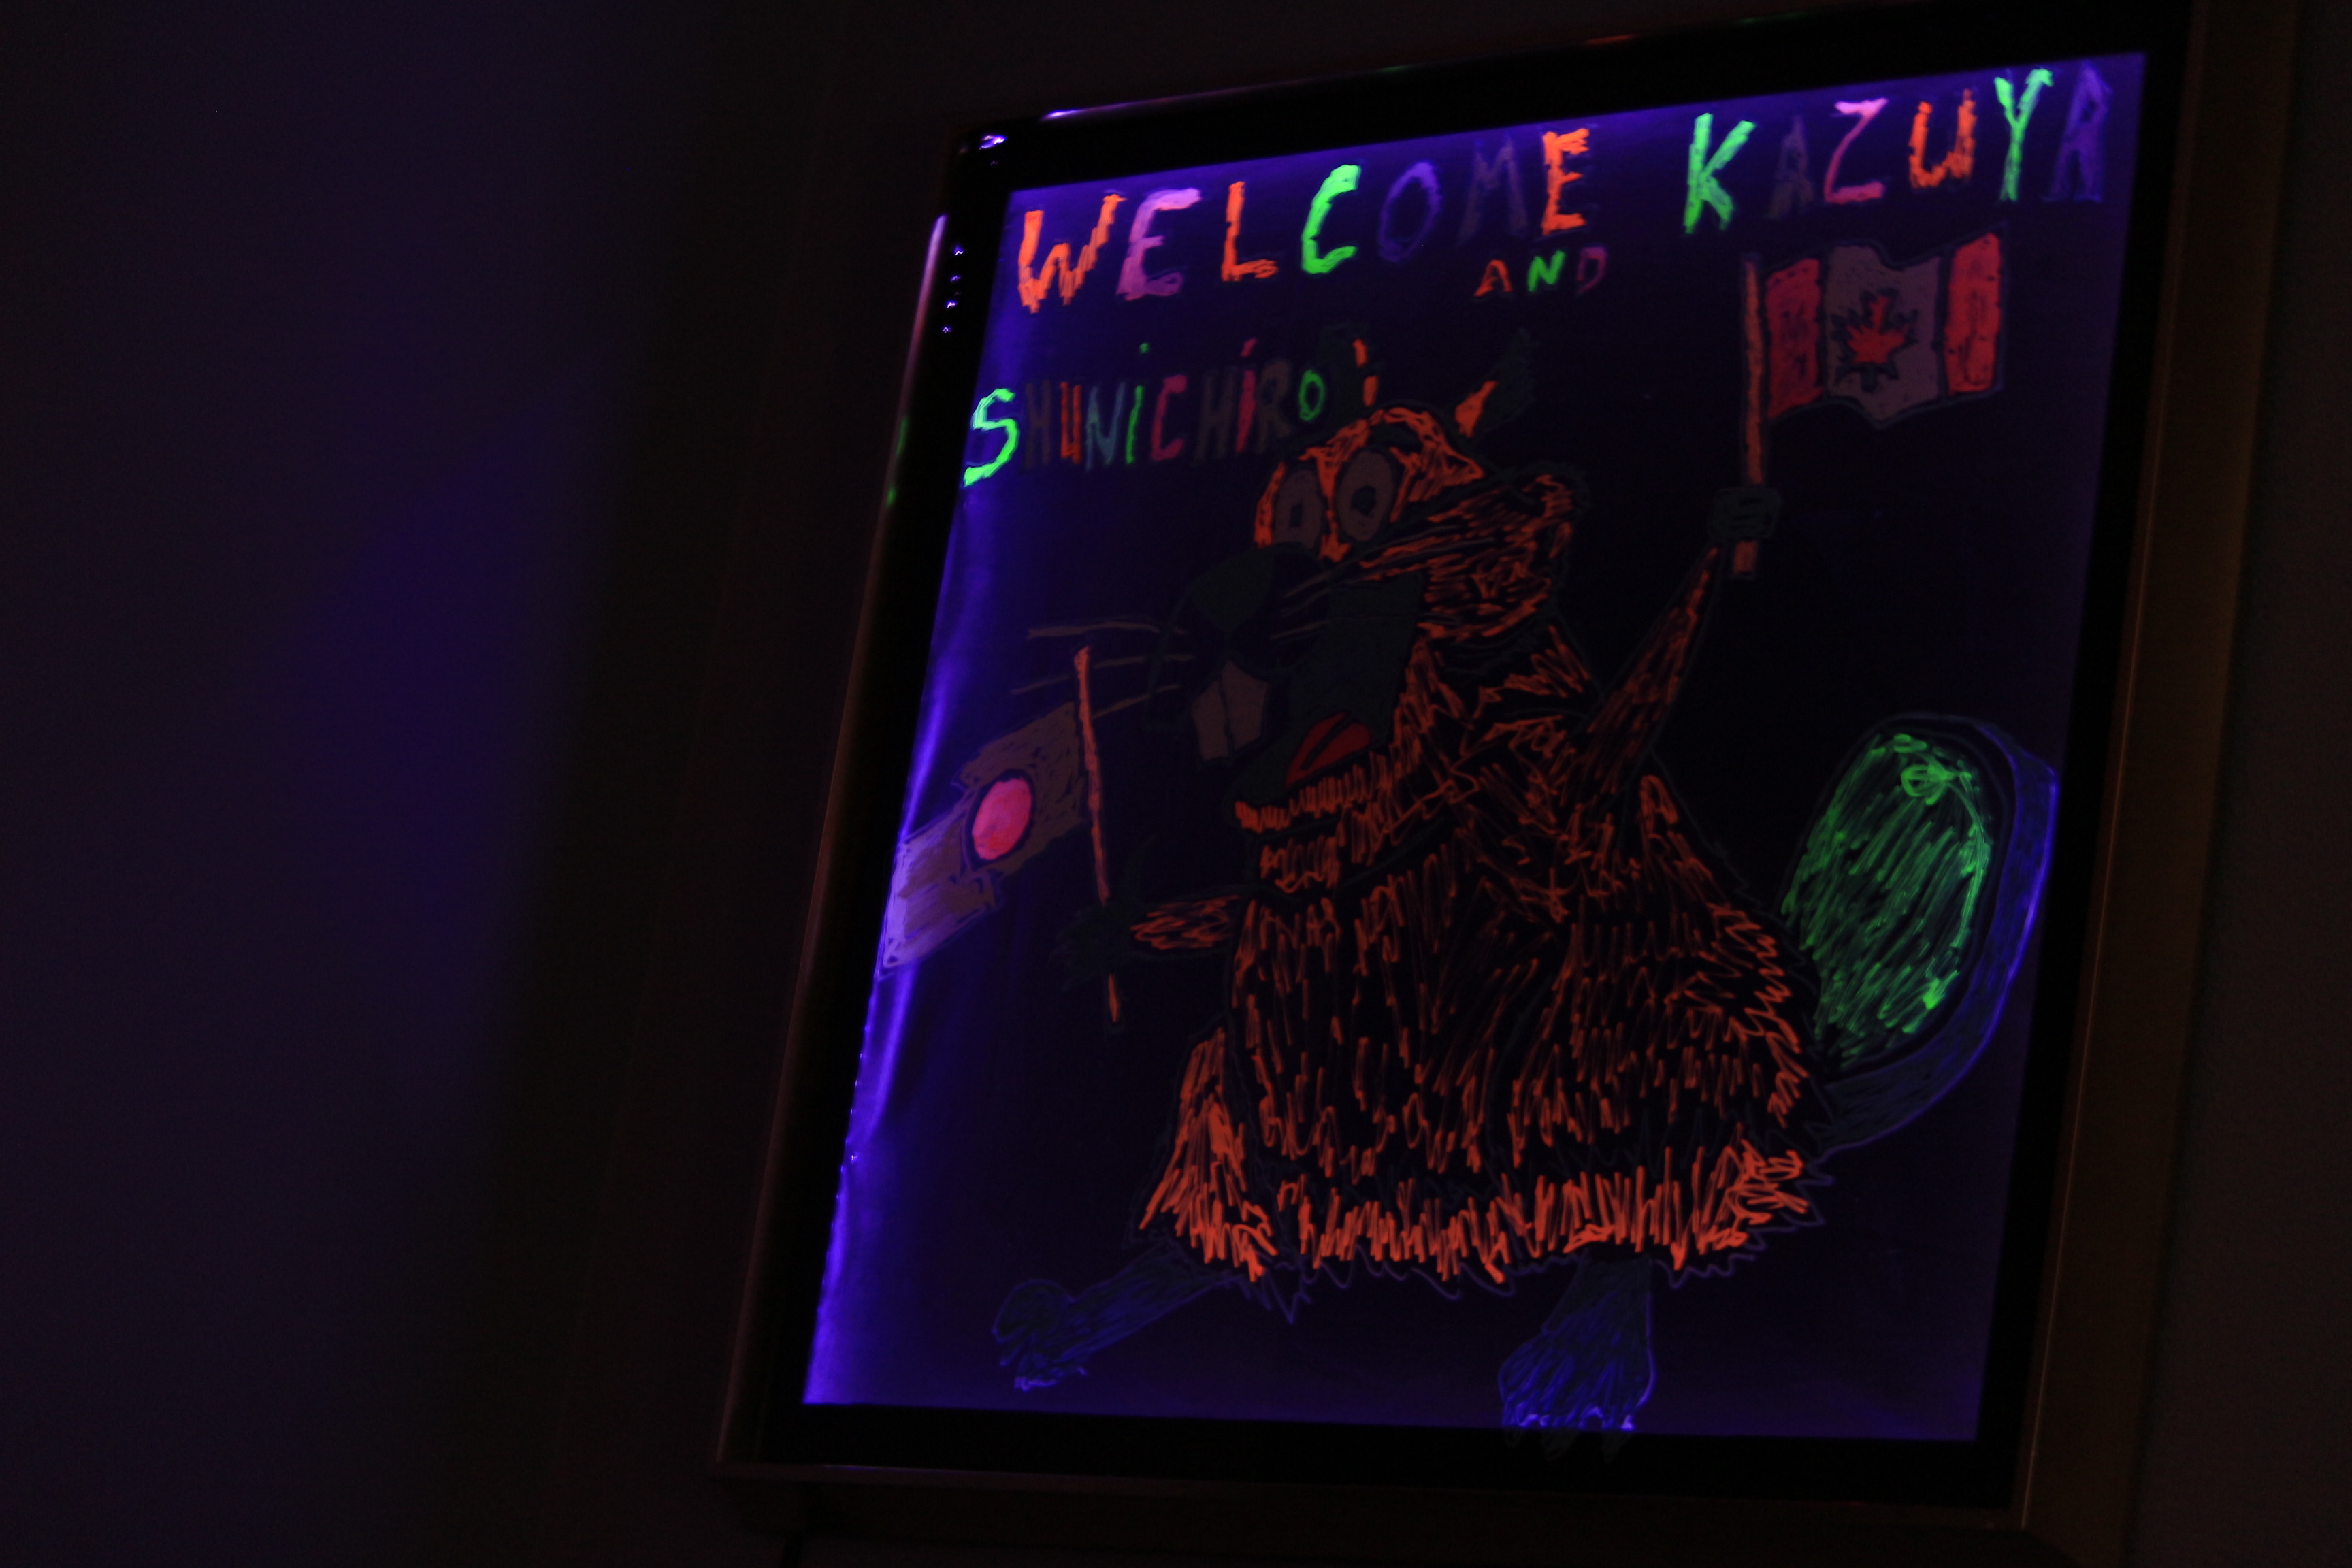 WELCOME KAZUYA
AND
SHUNiCHiRO!